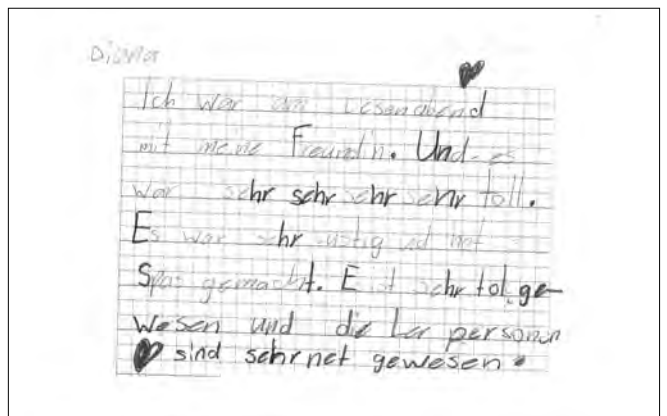 Diana
Ich war am Lesenabend
mit meine Freundin. Und es
war sehr sehr sehr sehr toll.
Es war sehr lustig und hat
Spas gemacht. E ist sehr tol ge-
wesen und die Ler personen
sind sehr net gewesen.